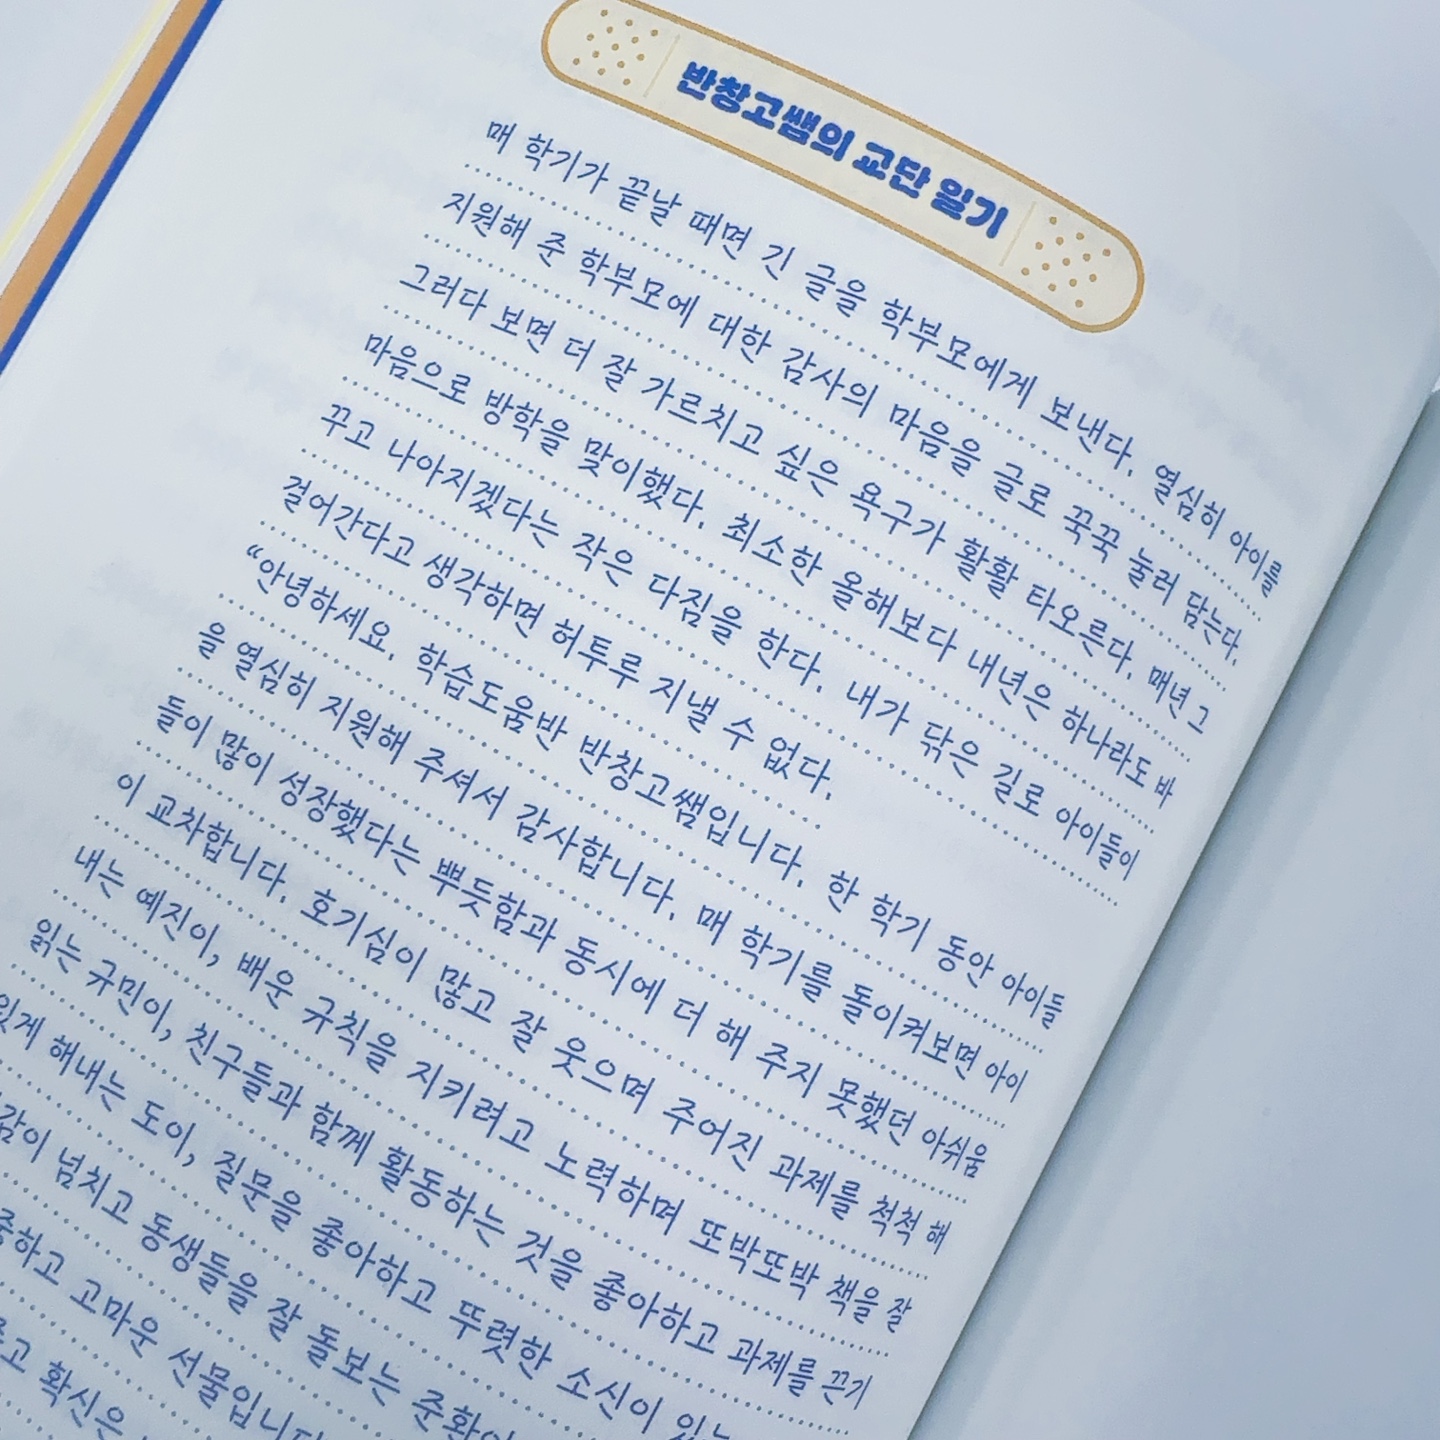 반창고쌤의 교단 일기
매 학기가 끝날 때면 긴 글을 학부모에게 보낸다. 열심히 아이를
지원해 준 학부모에 대한 감사의 마음을 글로 꾹꾹 눌러 담는다.
그러다 보면 더 잘 가르치고 싶은 욕구가 활활 타오른다. 매년 그
마음으로 방학을 맞이했다. 최소한 올해보다 내년은 하나라도 바
꾸고 나아지겠다는 작은 다짐을 한다. 내가 닦은 길로 아이들이
걸어간다고 생각하면 허투루 지낼 수 없다.
“안녕하세요. 학습도움반 반창고쌤입니다. 한 학기 동안 아이들
을 열심히 지원해 주셔서 감사합니다. 매 학기를 돌이켜보면 아이
들이 많이 성장했다는 뿌듯함과 동시에 더 해 주지 못했던 아쉬움
이 교차합니다. 호기심이 많고 잘 웃으며 주어진 과제를 척척 해
내는 예진이, 배운 규칙을 지키려고 노력하며 또박또박 책을 잘
읽는 규민이, 친구들과 함께 활동하는 것을 좋아하고 과제를 끈기
있게 해내는 도이, 질문을 좋아하고 뚜렷한 소신이
넘치고 동생들을 잘 돌보는
고마운 선물입니다
확신은